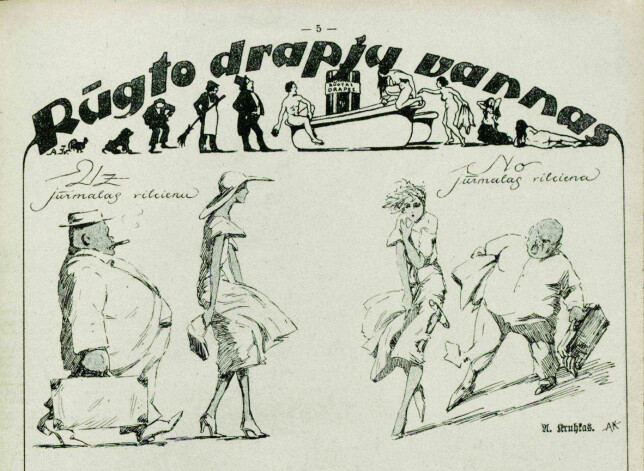 — 5 —
Rūgto drapju vannas
RŪGTAS
DRAPES
A. I.
Uz
jūrmalas vilcienu
No
jūrmalas vilciena
A. Kruhkas.
AK